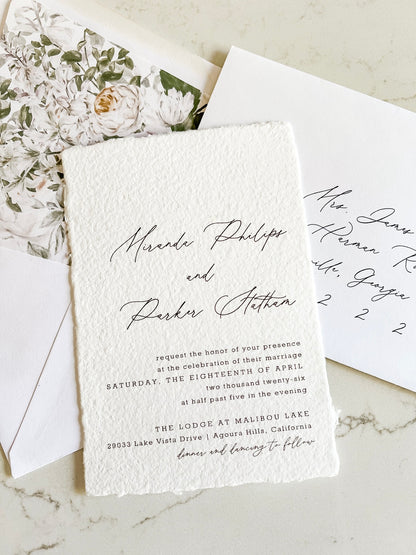 Miranda Philips
and
Parker Statham
request the honor of your presence
at the celebration of their marriage
SATURDAY, THE EIGHTEENTH OF APRIL
two thousand twenty-six
at half past five in the evening
THE LODGE AT MALIBOU LAKE
29033 Lake Vista Drive | Agoura Hills, California
dinner and dancing to follow
Mrs. James
Herman
ville, Georgia
2 2 2